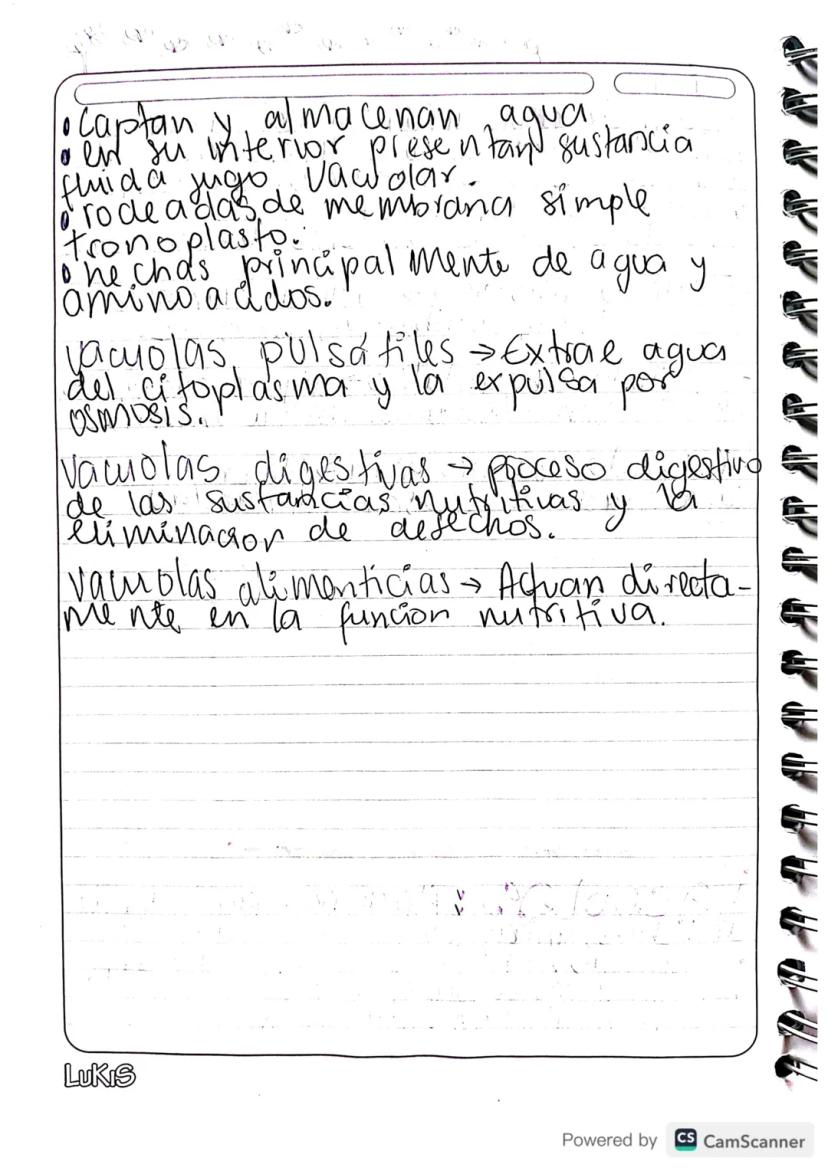 • Captan y almacenan agua
• en su interior presentan sustancia
fluida jugo vacuolar.
• rodeadas de membrana simple
tronoplasto.
• hechas principalmente de agua y
aminoacidos.
vacuolas pulsátiles → Extrae agua
del citoplasma y la expulsa por
osmosis.
Vacuolas digestivas → proceso digestivo
de las sustancias nutritivas y la
eliminacion de desechos.
Vacuolas alimenticias → Actuan directa-
mente en la funcion nutritiva.
LUKIS
Powered by CS CamScanner